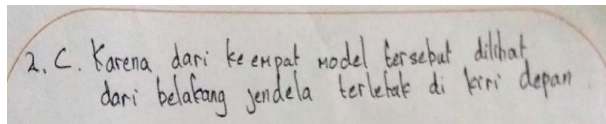 2. C. Karena dari ke empat model tersebut dilihat
dari belakang jendela terletak di kiri depan